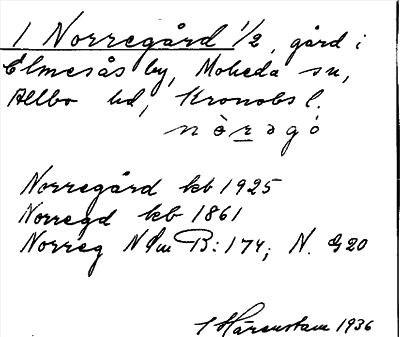 1 Norregård 1/2, gård i
Elmesås by, Moheda sn,
Allbo hd, Kronobs l.
nòṟəgó
Norregård kb 1925
Norregd kb 1861
Norreg N Sm B: 174; N. G20
Härenstam 1936